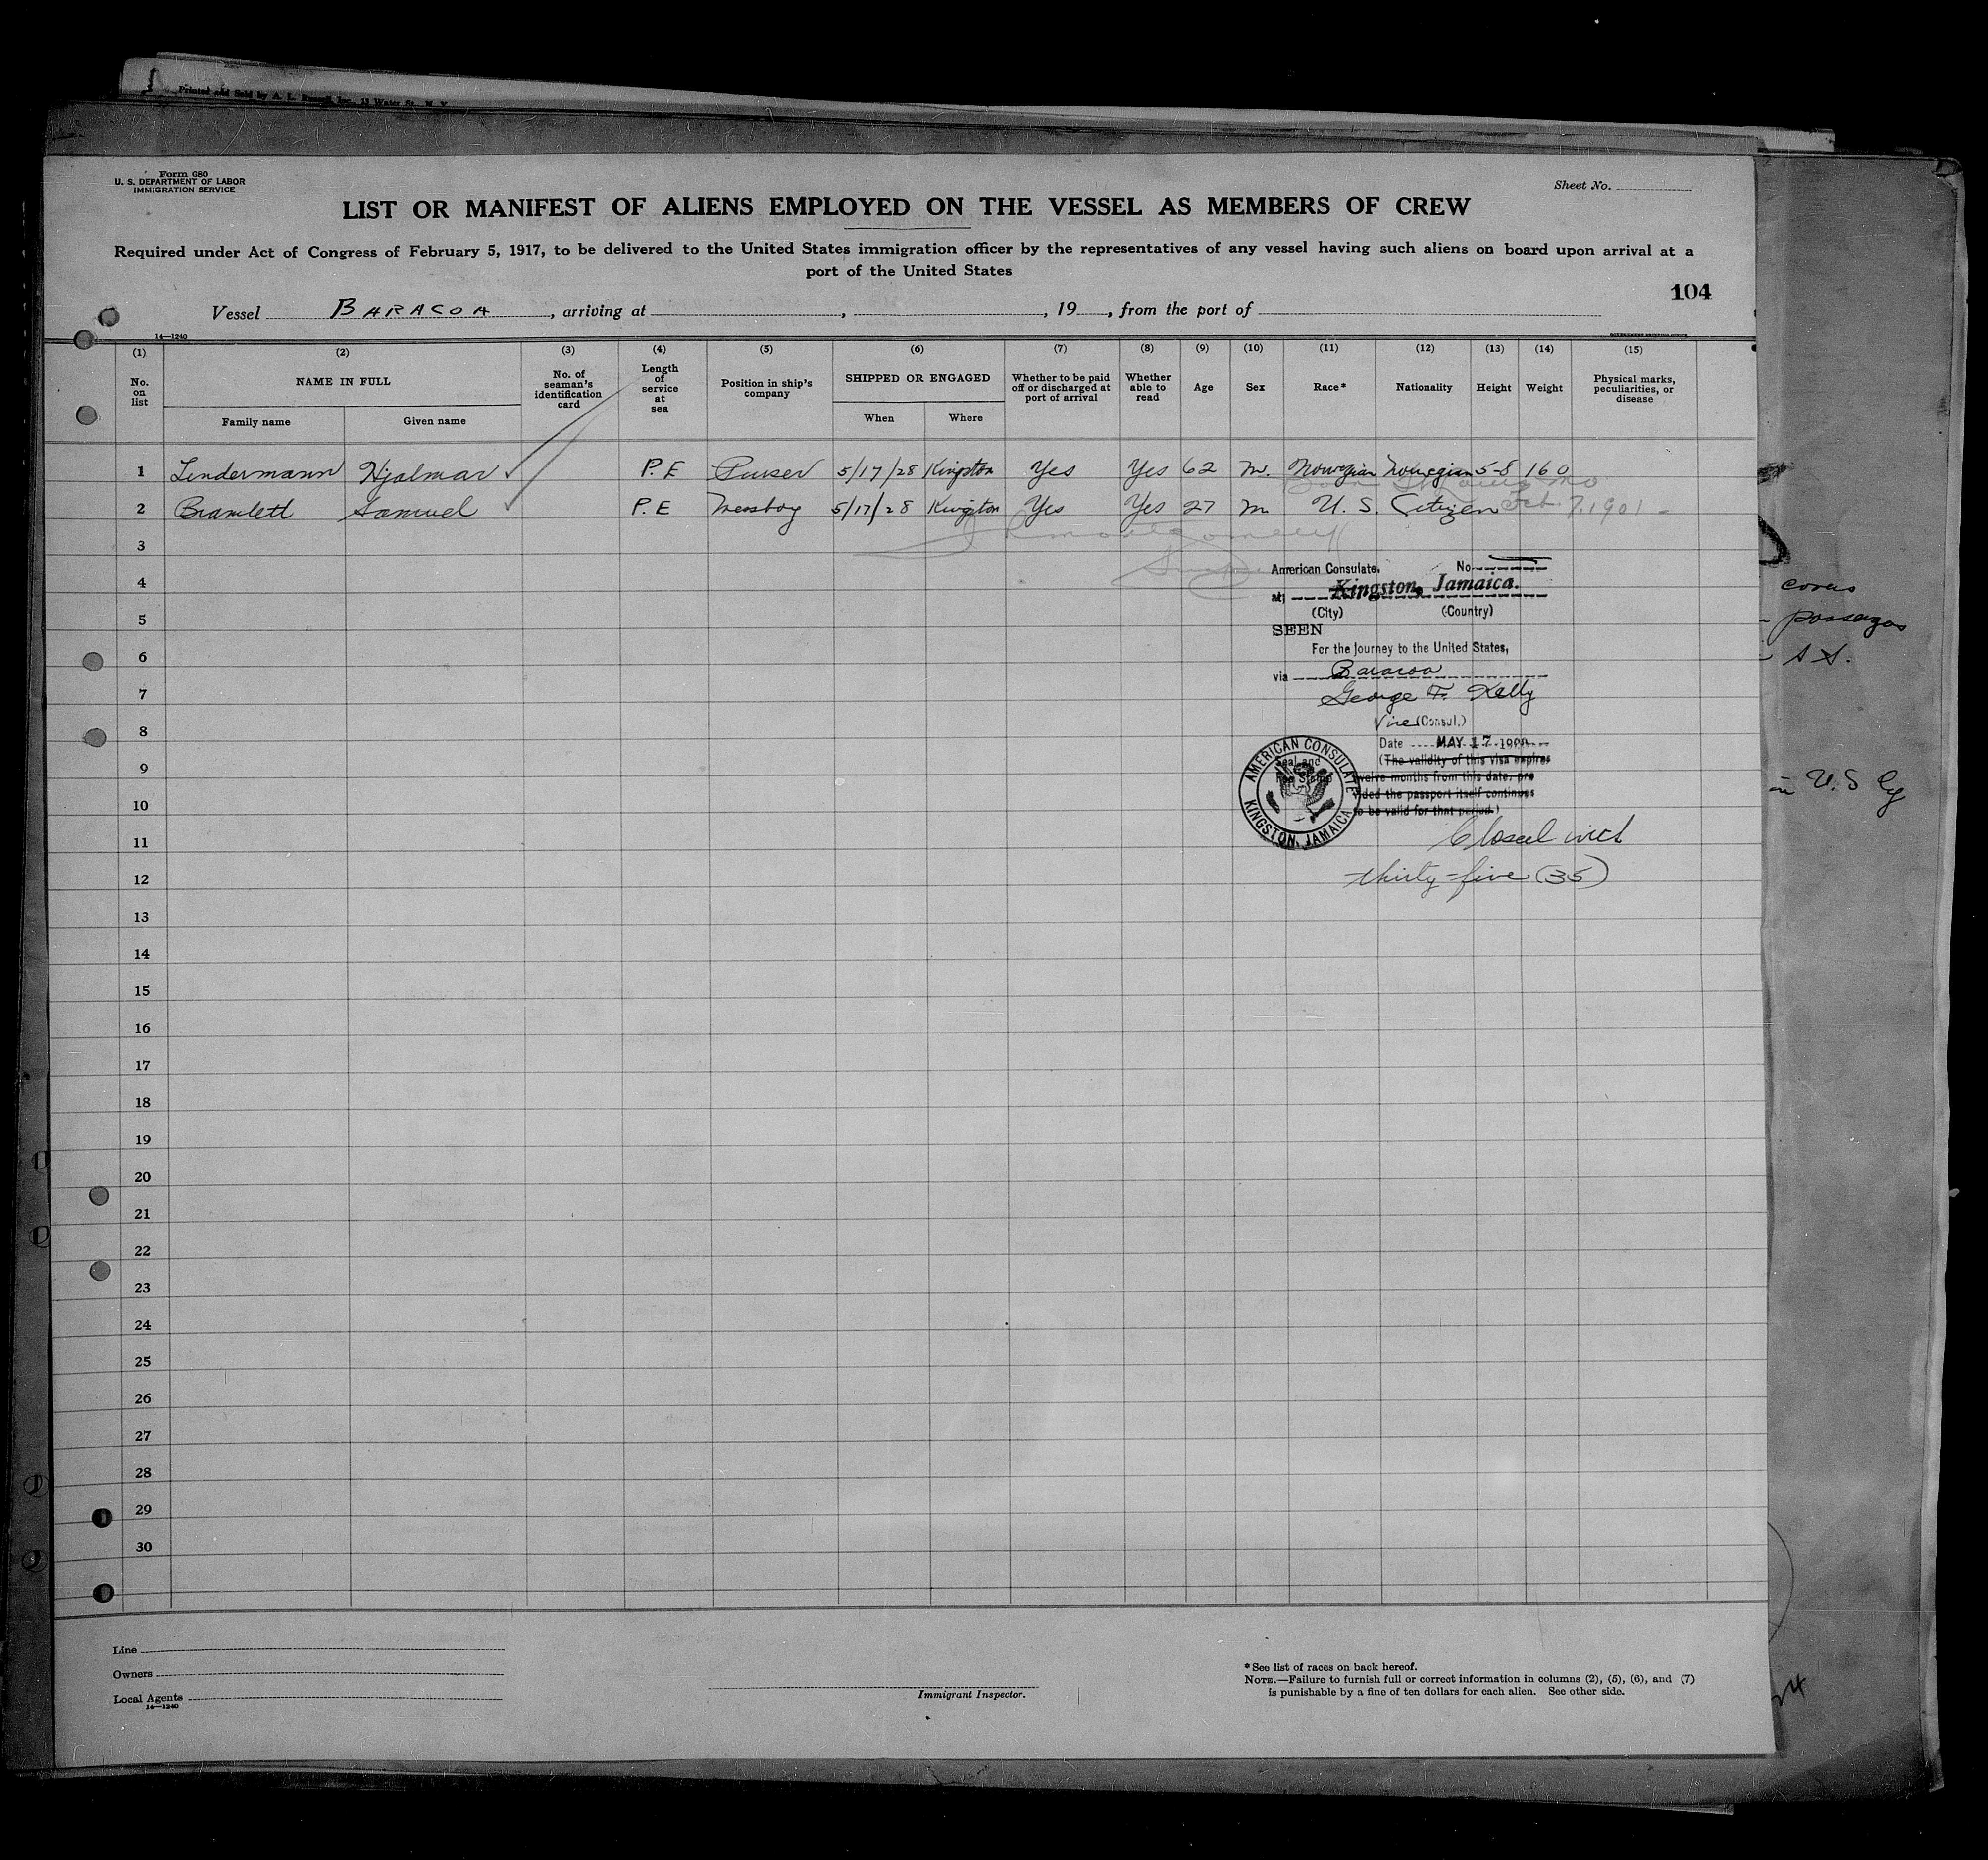 Printed and Sold by A. L. Russell, Inc., 13 Water St., N. Y.
Form 680
U. S. DEPARTMENT OF LABOR
IMMIGRATION SERVICE
Sheet No.
LIST OR MANIFEST OF ALIENS EMPLOYED ON THE VESSEL AS MEMBERS OF CREW
Required under Act of Congress of February 5, 1917, to be delivered to the United States immigration officer by the representatives of any vessel having such aliens on board upon arrival at a
port of the United States
104
Vessel BARACOA, arriving at , , 19 , from the port of
14—1240
GOVERNMENT PRINTING OFFICE
(1) (2) (3) (4) (5) (6) (7) (8) (9) (10) (11) (12) (13) (14) (15)
No. on list
NAME IN FULL
Family name Given name
No. of seaman's identification card
Length of service at sea
Position in ship's company
SHIPPED OR ENGAGED
When Where
Whether to be paid off or discharged at port of arrival
Whether able to read
Age
Sex
Race*
Nationality
Height
Weight
Physical marks, peculiarities, or disease
1 Lindermann Hjalmar P.E Purser 5/17/28 Kingston Yes Yes 62 m. Norwegian Norwegian 5-8 160
Born St Louis Mo
2 Bramlett Samuel P.E Messboy 5/17/28 Kingston Yes Yes 27 m U.S. Citizen Feb. 7, 1901 -
3
4
5
6
7
8
9
10
11
12
13
14
15
16
17
18
19
20
21
22
23
24
25
26
27
28
29
30
American Consulate. No
at Kingston, Jamaica.
(City) (Country)
SEEN
For the journey to the United States,
via Baracoa
George F. Kelly
Vice (Consul.)
Date MAY 17
(The validity of this visa expires
twelve months from this date, pro
vided the passport itself continues
to be valid for that period.)
Seal and
Fee Stamp
AMERICAN CONSULATE
KINGSTON, JAMAICA
Closed with
thirty-five (35)
passengers
S S.
in U.S
Line
Owners
Local Agents
14—1240
Immigrant Inspector.
* See list of races on back hereof.
NOTE.—Failure to furnish full or correct information in columns (2), (5), (6), and (7)
is punishable by a fine of ten dollars for each alien. See other side.